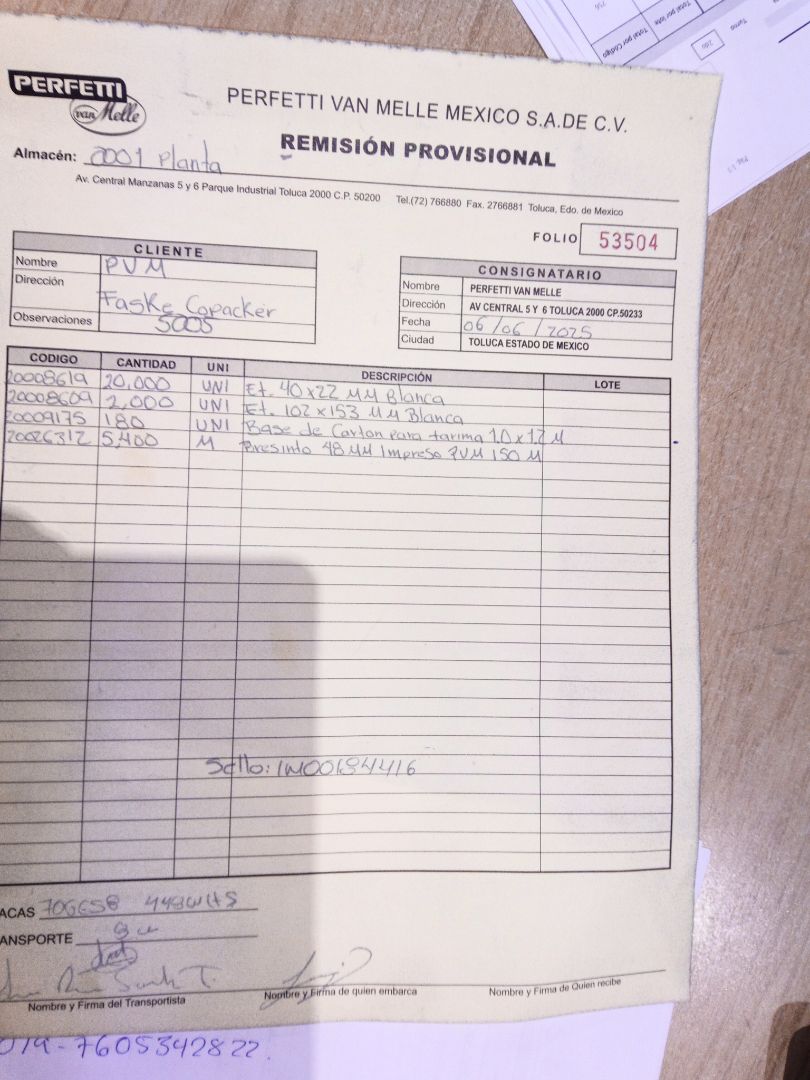 PERFETTI
van Melle
PERFETTI VAN MELLE MEXICO S.A.DE C.V.
REMISIÓN PROVISIONAL
Almacén: 2001 Planta
Av. Central Manzanas 5 y 6 Parque Industrial Toluca 2000 C.P. 50200 Tel.(72) 766880 Fax. 2766881 Toluca, Edo. de Mexico
FOLIO 53504
CLIENTE
Nombre PVM
Dirección Faske Copacker
Observaciones 5005
CONSIGNATARIO
Nombre PERFETTI VAN MELLE
Dirección AV CENTRAL 5 Y 6 TOLUCA 2000 CP.50233
Fecha 06/06/2025
Ciudad TOLUCA ESTADO DE MEXICO
CODIGO CANTIDAD UNI DESCRIPCIÓN LOTE
20008619 20,000 UNI Et. 40x22 MM Blanca
20008609 2,000 UNI Et. 102x153 MM Blanca
20009175 180 UNI Base de Carton para tarima 1.0x1.2 M
20026312 5,400 M Presinto 48 MM Impreso PVM 150 M
Sello: IM00184416
ACAS 70GES8 448WH5
ANSPORTE
Nombre y Firma del Transportista
Nombre y Firma de quien embarca
Nombre y Firma de Quien recibe
019-7605342822.
Total por Código
Total por lote
Turno
2do